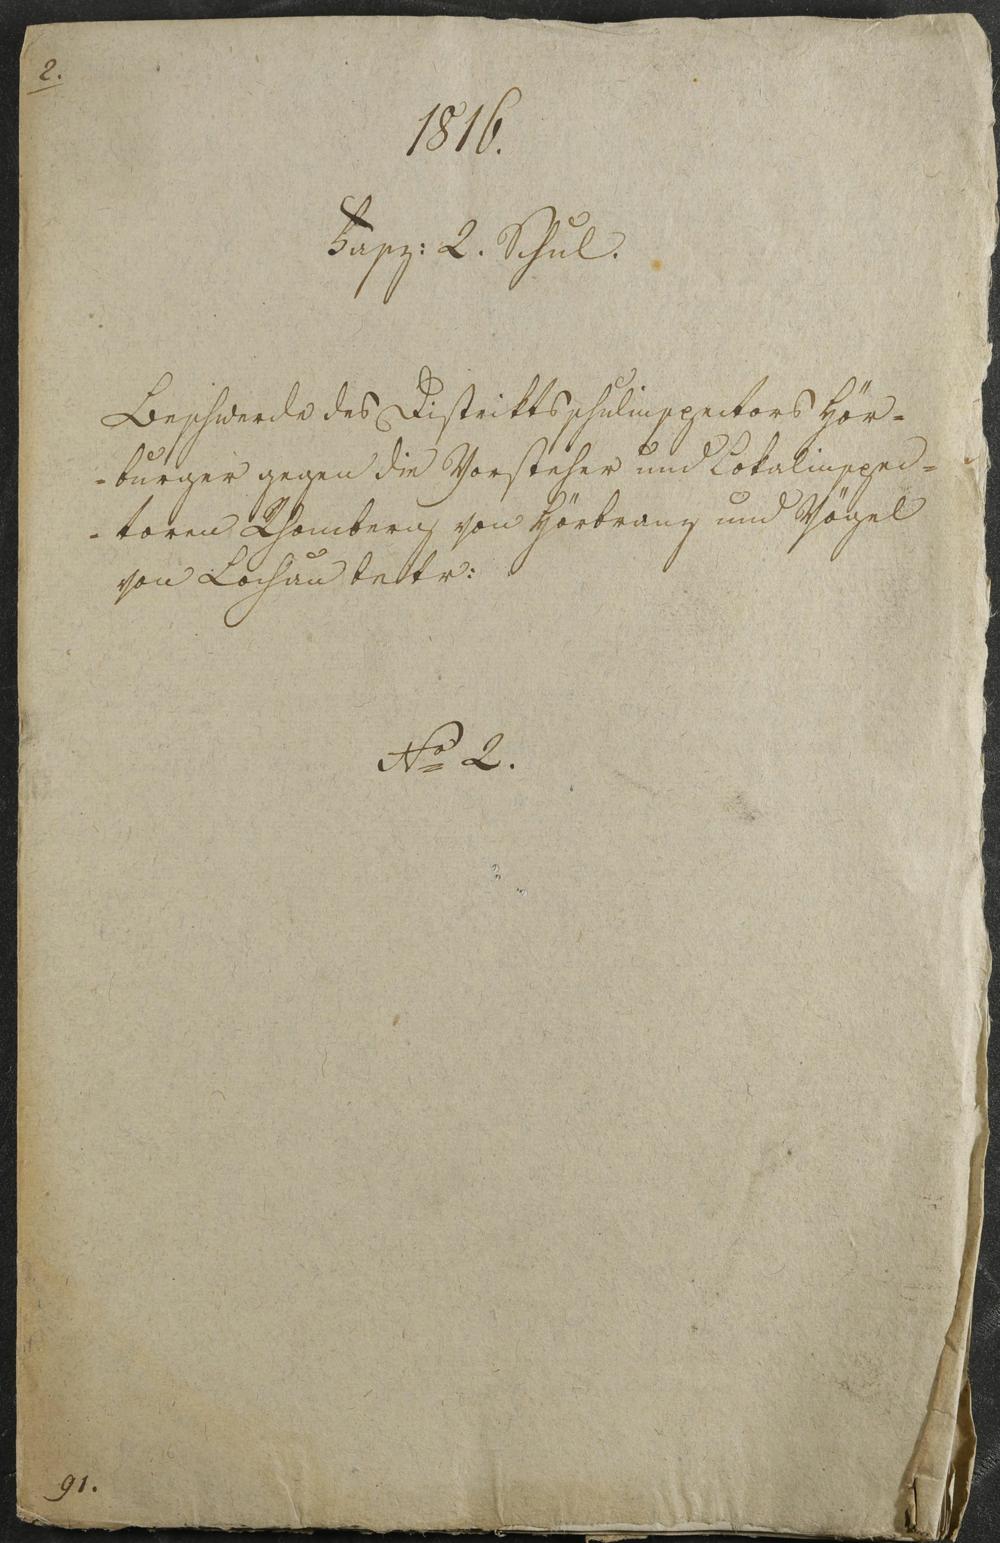 2.
1816.
Fasz: 2. Schul.
Beschwerde des Distriktsschulinspectors Hör-
-burger gegen die Vorsteher und Lokalinspec-
-toren Rhomberg von Hörbranz und Vögel
von Lochau betr:
No 2.
91.